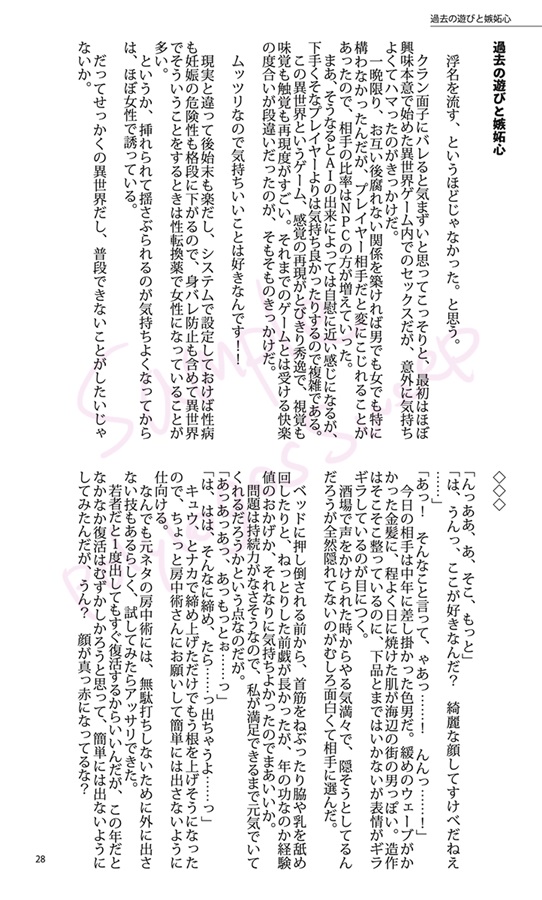 過去の遊びと嫉妬心
過去の遊びと嫉妬心
浮名を流す、というほどじゃなかった。と思う。
クラン面子にバレると気まずいと思ってこっそりと、最初はほぼ
興味本意で始めた異世界ゲーム内でのセックスだが、意外に気持ち
よくてハマったのがきっかけだ。
一晩限り、お互い後腐れない関係を築ければ男でも女でも特に
構わなかったんだが、プレイヤー相手だと変にこじれることが
あったので、相手の比率はNPCの方が増えていった。
まあ、そうなるとAIの出来によっては自慰に近い感じになるが、
下手くそなプレイヤーよりは気持ち良かったりするので複雑である。
この異世界というゲーム、感覚の再現がとびきり秀逸で、視覚も
味覚も触覚も再現度がすごい。それまでのゲームとは受ける快楽
の度合いが段違いだったのが、そもそものきっかけだ。
ムッツリなので気持ちいいことは好きなんです!!
現実と違って後始末も楽だし、システムで設定しておけば性病
も妊娠の危険性も格段に下がるので、身バレ防止も含めて異世界
でそういうことをするときは性転換薬で女性になっていることが
多い。
というか、挿れられて揺さぶられるのが気持ちよくなってから
は、ほぼ女性で誘っている。
だってせっかくの異世界だし、普段できないことがしたいじゃ
ないか。
◇◇◇
「んっああ、あ、そこ、もっと」
「は、うんっ、ここが好きなんだ? 綺麗な顔してすけべだねえ
……」
「あっ! そんなこと言って、ゃあっ……! んんっ……!」
今日の相手は中年に差し掛かった色男だ。緩めのウェーブがか
かった金髪に、程よく日に焼けた肌が海辺の街の男っぽい。造作
はそこそこ整っているのに、下品とまではいかないが表情がギラ
ギラしているのが目につく。
酒場で声をかけられた時からやる気満々で、隠そうとしてるん
だろうが全然隠れてないのがむしろ面白くて相手に選んだ。
ベッドに押し倒される前から、首筋をねぶったり脇や乳を舐め
回したりと、ねっとりした前戯が長かったが、年の功なのか経験
値のおかげか、それなりに気持ちよかったのでまあいいか。
問題は持続力がなさそうなので、私が満足できるまで元気でいて
くれるだろうかという点なのだが。
「あっあっあっ、あっもっとぉ……っ」
「は、はは、そんなに締め、たら……っ出ちゃうよ……っ」
キュウ、とナカで締め上げただけでもう根を上げそうになった
ので、ちょっと房中術さんにお願いして簡単には出さないように
仕向ける。
なんでも元ネタの房中術には、無駄打ちしないために外に出さ
ない技もあるらしく、試してみたらアッサリできた。
若者だと1度出してもすぐ復活するからいいんだが、この年だと
なかなか復活はむずかしかろうと思って、簡単には出ないように
してみたんだが、うん? 顔が真っ赤になってるな?
28